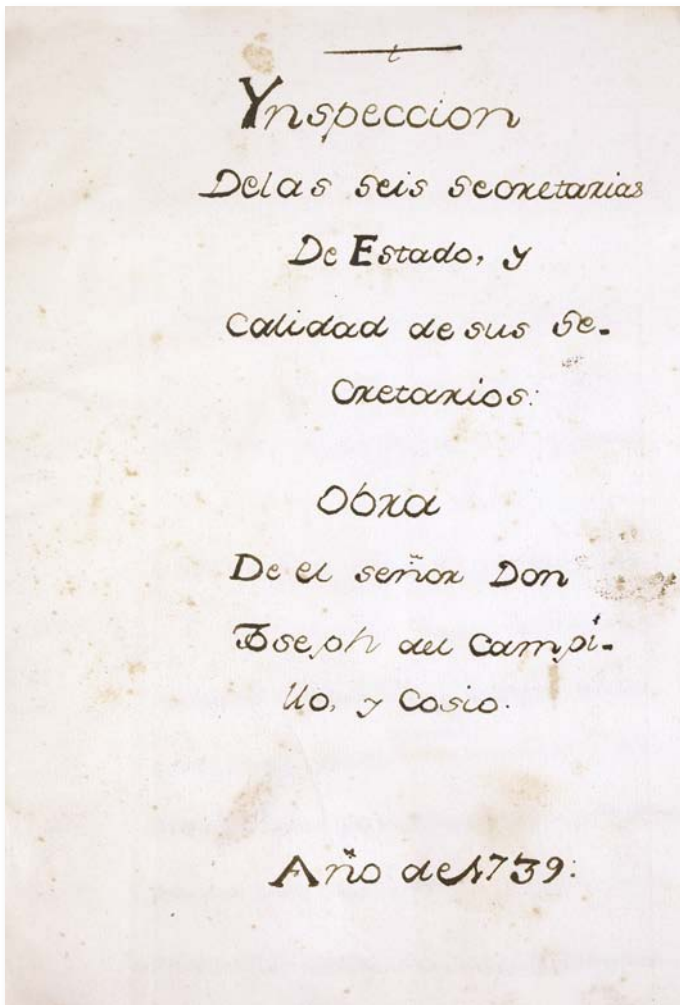 Ynspeccion
Delas seis secretarias
De Estado, y
Calidad de sus Se-
Cretarios:
Obra
De el señor Don
Joseph del Campi-
llo, y Cosio.
Año de 1739: